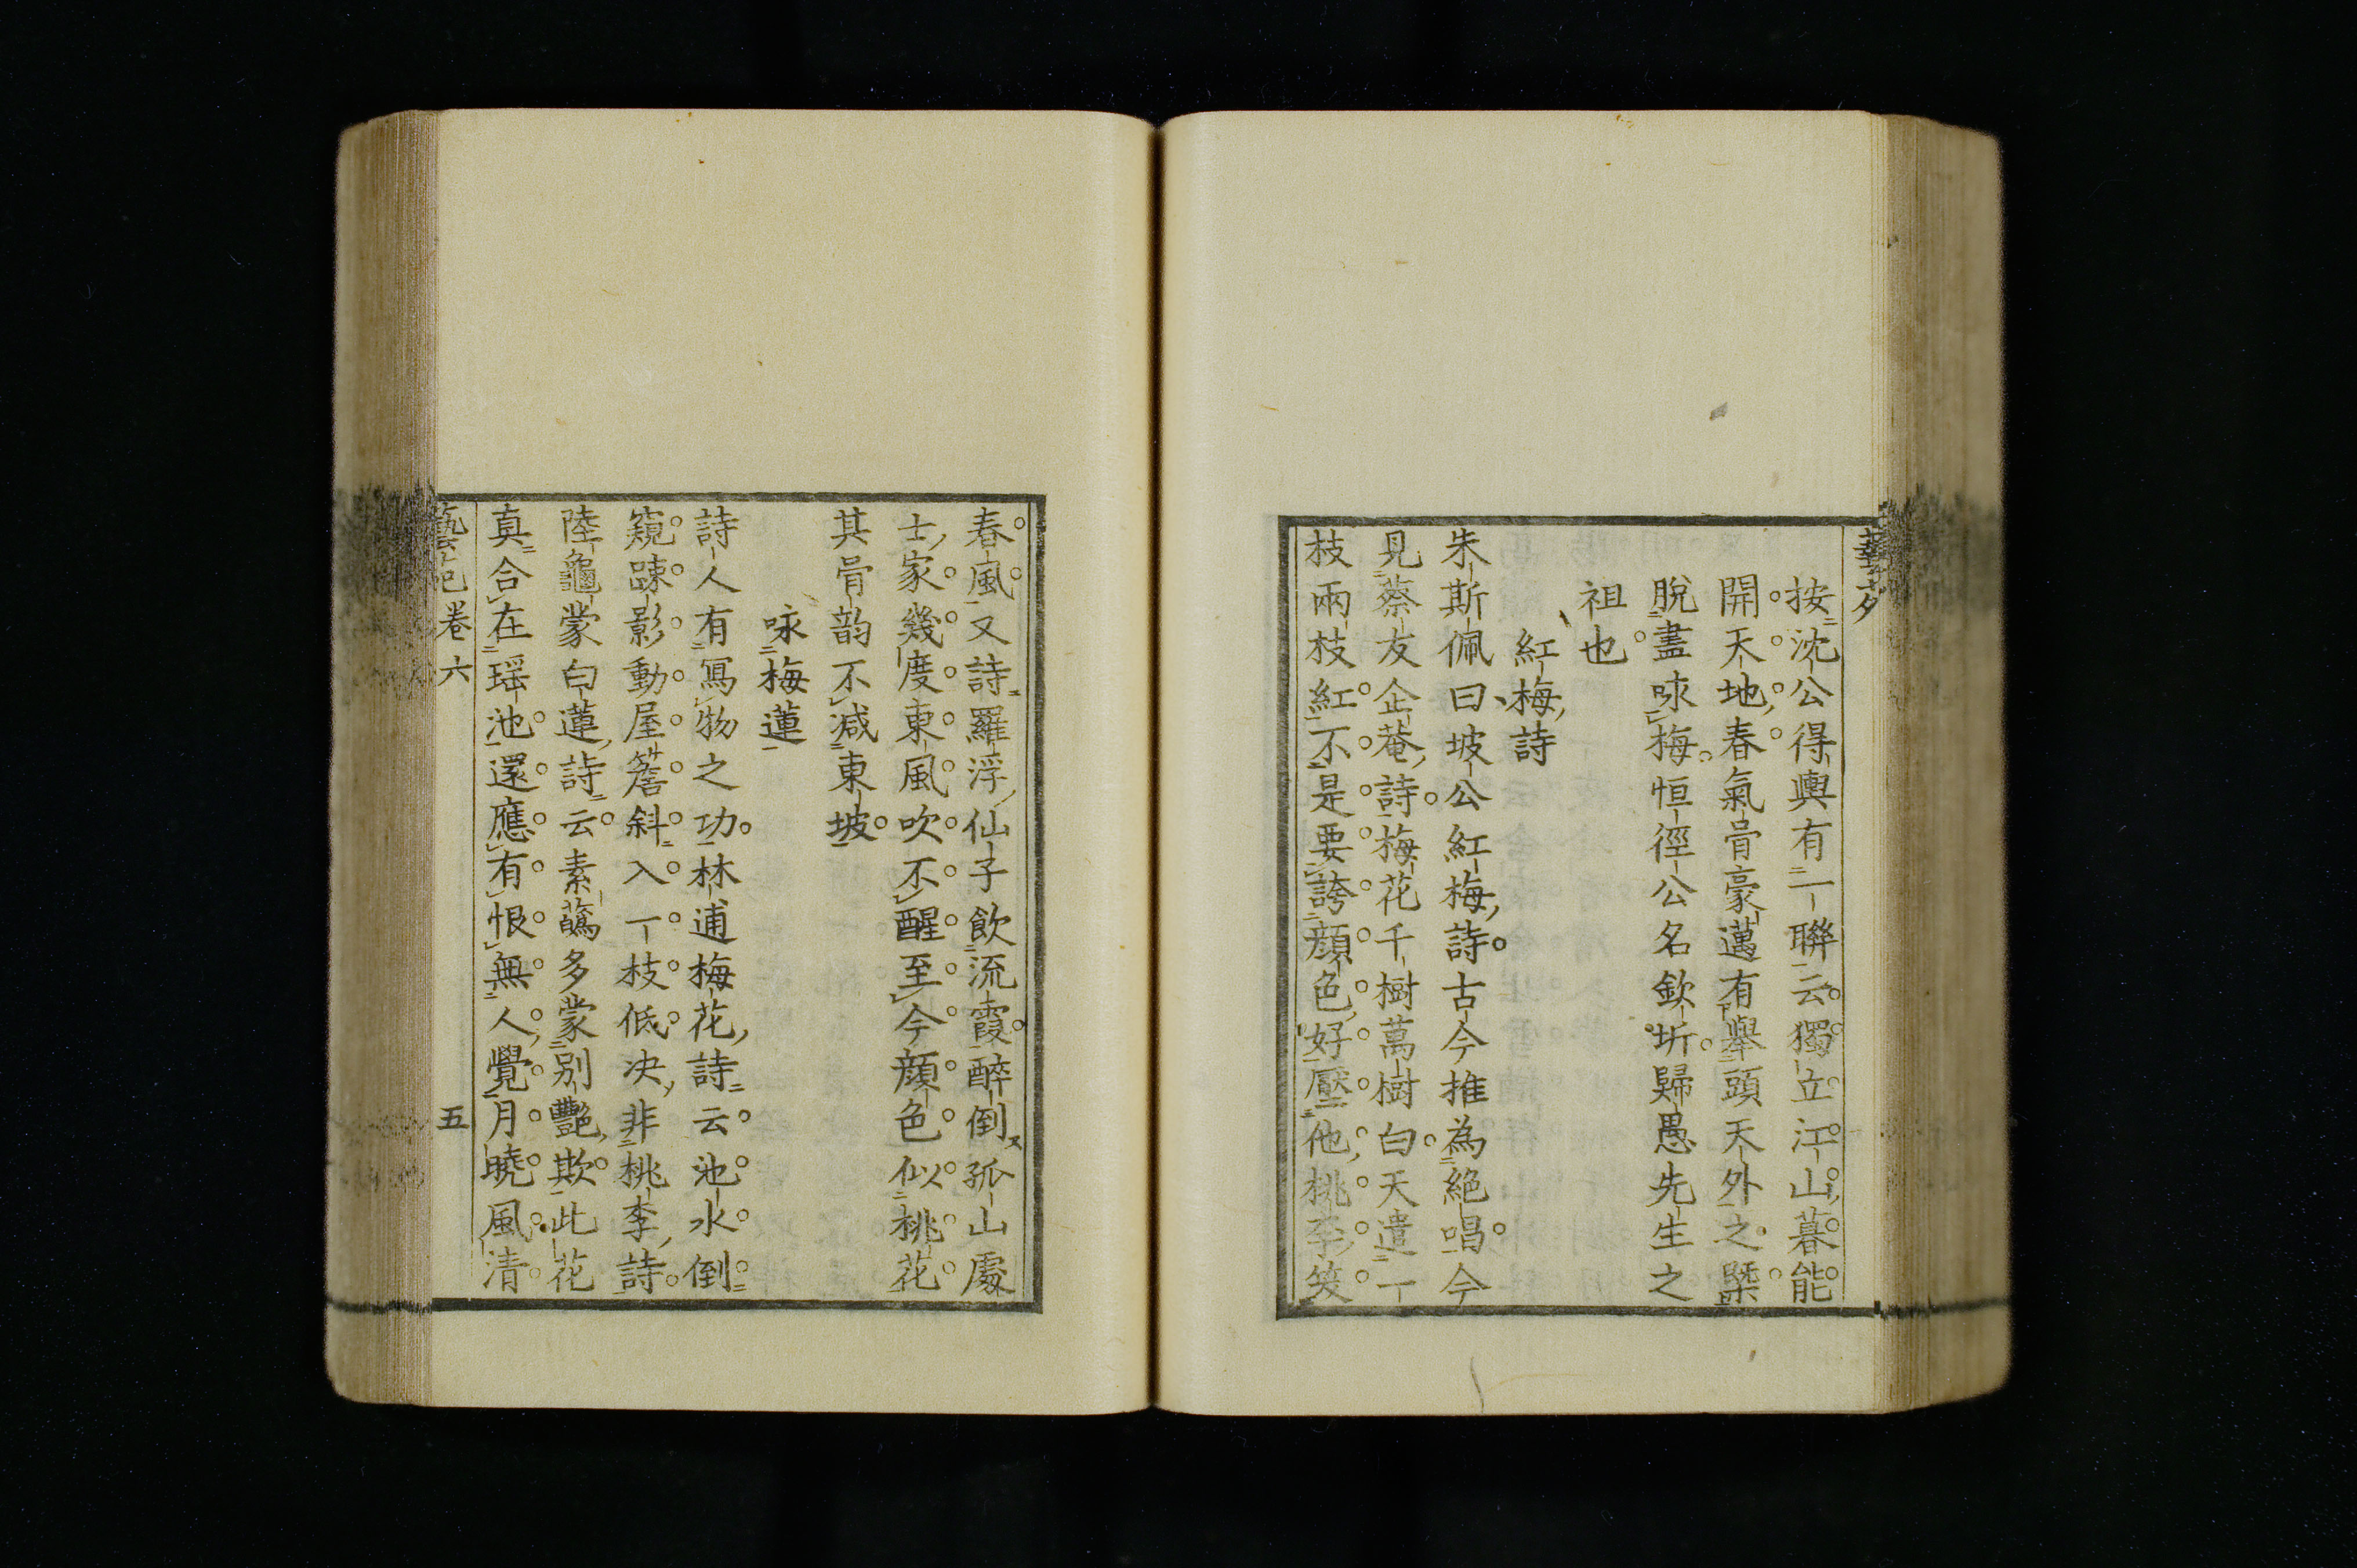 按沈公得輿有一聯云獨立江山暮能
開天地春氣骨豪邁有擧頭天外之槩
脫盡咏梅恒徑公名欽圻歸愚先生之
祖也
紅梅詩
朱斯佩曰坡公紅梅詩古今推為絕唱今
見蔡友企菴詩梅花千樹萬樹白天遣一
枝兩枝紅不是要誇顔色好壓他桃李笑
春風又詩羅浮仙子飲流霞醉倒孤山處
士家幾度東風吹不醒至今顔色似桃花
其骨韵不減東坡
咏梅蓮
詩人有寫物之功林逋梅花詩云池水倒
窺踈影動屋簷斜入一枝低决非桃李詩
陸龜蒙白蓮詩云素蘤多蒙别艷欺此花
真合在瑶池還應有恨無人覺月曉風清
藝苑卷六 五